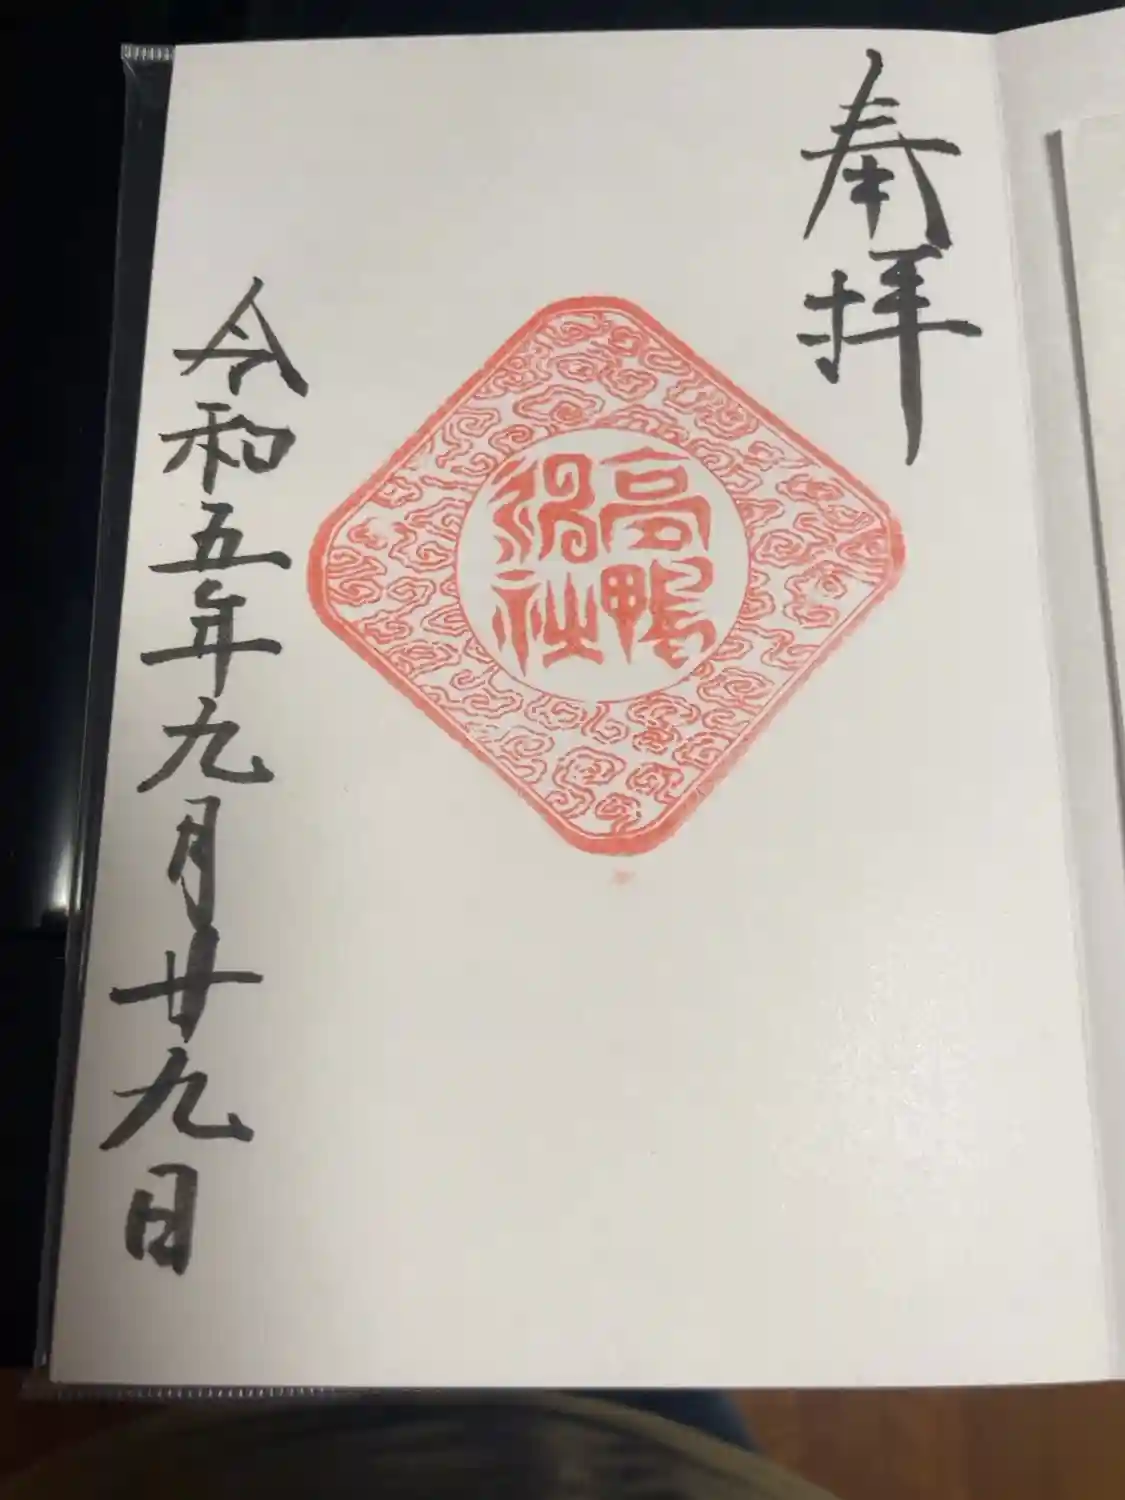 奉拝
高鴨
神社
令和五年九月廿九日